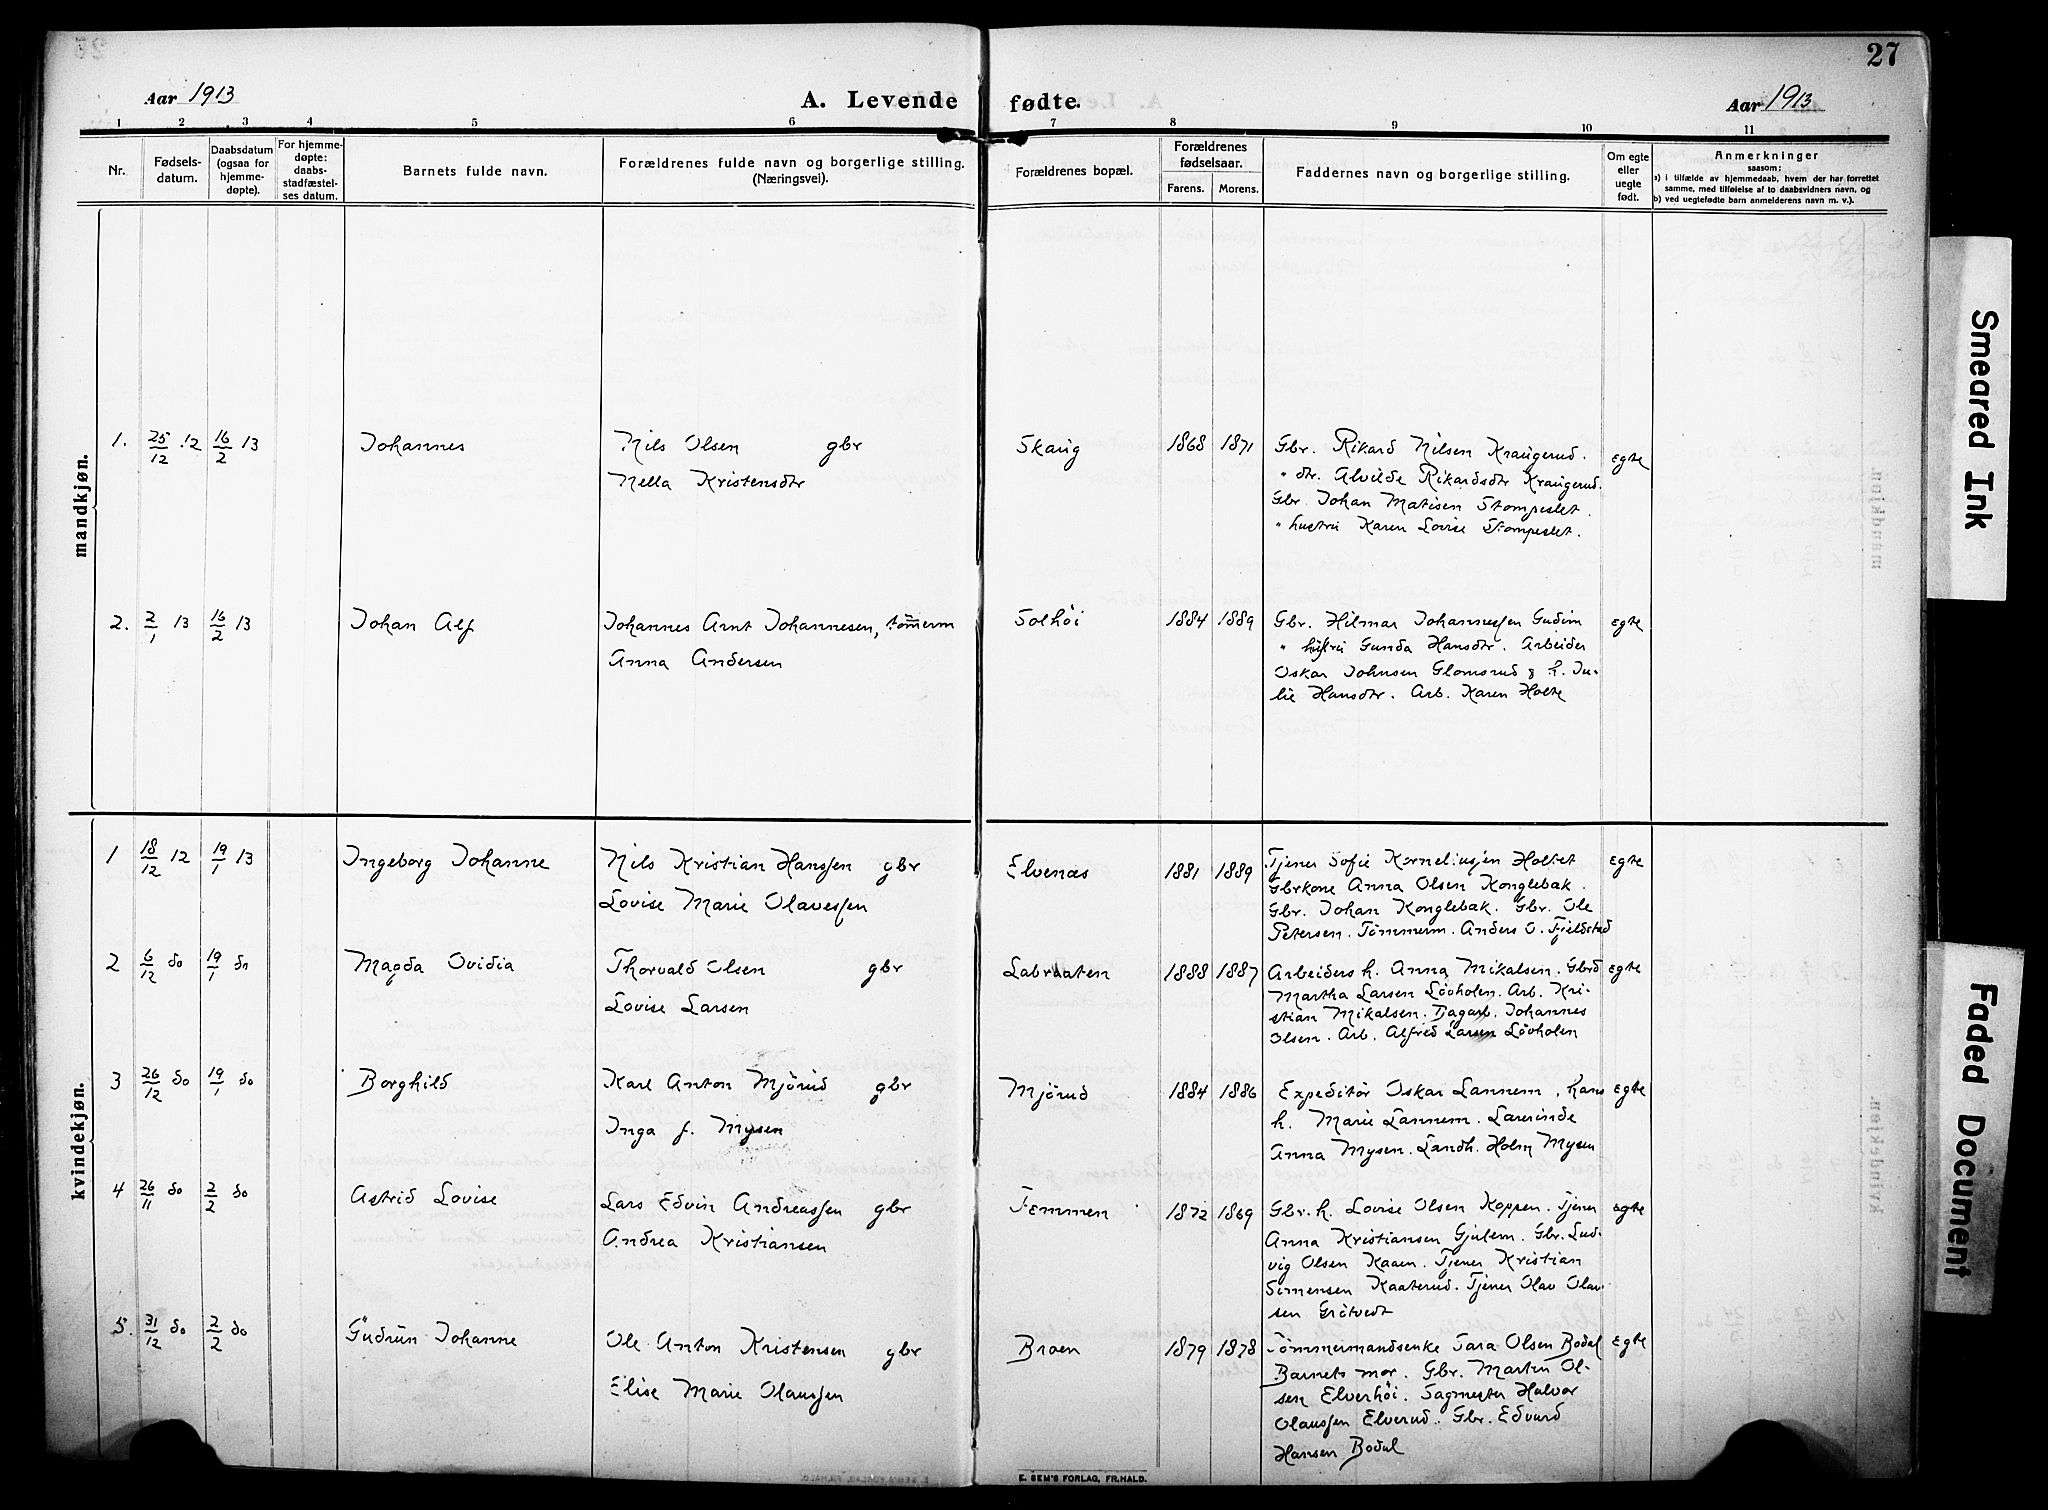 27
Aar 1913
A. Levende fødte.
Aar 1913
1 2 3 4 5 6 7 8 9 10 11
Nr.
Fødsels-
datum.
Daabsdatum
(ogsaa for
hjemme-
døpte).
For hjemme-
døpte:
daabs-
stadfæstel-
ses datum.
Barnets fulde navn.
Forældrenes fulde navn og borgerlige stilling.
(Næringsvei).
Forældrenes bopæl.
Forældrenes
fødselsaar.
Farens. Morens.
Faddernes navn og borgerlige stilling.
Om egte
eller
uegte
født.
Anmerkninger
saasom:
a) i tilfælde av hjemmedaab, hvem der har forrettet
samme, med tilføielse af to daabsvidners navn, og
b) ved uegtefødte barn anmelderens navn m. v.).
mandkjøn.
1. 25/12 12 16/2 13 Johannes Nils Olsen gbr Skaug 1868 1871 Gbr. Rikard Nilsen Kraugerud. egte
Nella Kristensdtr " dtr. Alvilde Rikardsdtr Kraugerud.
Gbr. Johan Matisen Stompeslet.
" hustru Karen Lovise Stompeslet.
2. 2/1 13 16/2 13 Johan Alf Johannes Arnt Johannesen, tømerm Solhöi 1884 1889 Gbr. Hilmar Johannessen Gudim egte
Anna Andersen " hustru Gunda Hansdtr. Arbeider
Oskar Johnsen Glomsrud & h. Ju-
lie Hansdtr. Arb. Karen Holte
kvindekjøn.
1 18/12 12 19/1 13 Ingeborg Johanne Nils Kristian Hanssen gbr Elvenæs 1881 1889 Tjener Sofie Korneliussen Holtet egte
Lovise Marie Olavessen Gbrkone Anna Olsen Konglebak.
Gbr. Johan Konglebak. Gbr. Ole
Petersen. Tömmerm. Anders O. Fjeldstad
2 6/12 do 19/1 do Magda Ovidia Thorvald Olsen gbr Labraaten 1888 1887 Arbeiders h. Anna Mikalsen. Gbrd egte
Lovise Larsen Martha Larsen Lövholen. Arb. Kri-
stian Mikalsen. Dagarb. Johannes
Olsen. Arb. Alfred Larsen Lövholen
3 26/12 do 19/1 do Borghild Karl Anton Mjörud gbr Mjörud 1884 1886 Expeditör Oskar Lannem, hans egte
Inga f. Mysen h. Marie Lannem. Lærerinde
Anna Mysen. Landh. Holm Mysen
4 26/11 do 2/2 do Astrid Lovise Lars Edvin Andreassen gbr Femmen 1872 1869 Gbr. h. Lovise Olsen Koppen. Tjener egte
Andrea Kristiansen Anna Kristiansen Gjulem. Gbr. Lud-
vig Olsen Kaaen. Tjener Kristian
Simensen Kaaterud. Tjener Olav Olav-
sen Grötvedt
5. 31/12 do 2/2 do Gudrun Johanne Ole Anton Kristensen gbr Broen 1879 1878 Tömmermandsenke Sara Olsen Bodal egte
Elise Marie Olaussen Barnets mor. Gbr. Martin Ol-
sen Elverhöi. Sagmester Halvor
Olaussen Elverud. Gbr. Edvard
Hansen Bodal
E. SEM'S FORLAG, FR.HALD.
Smeared Ink
Faded Document